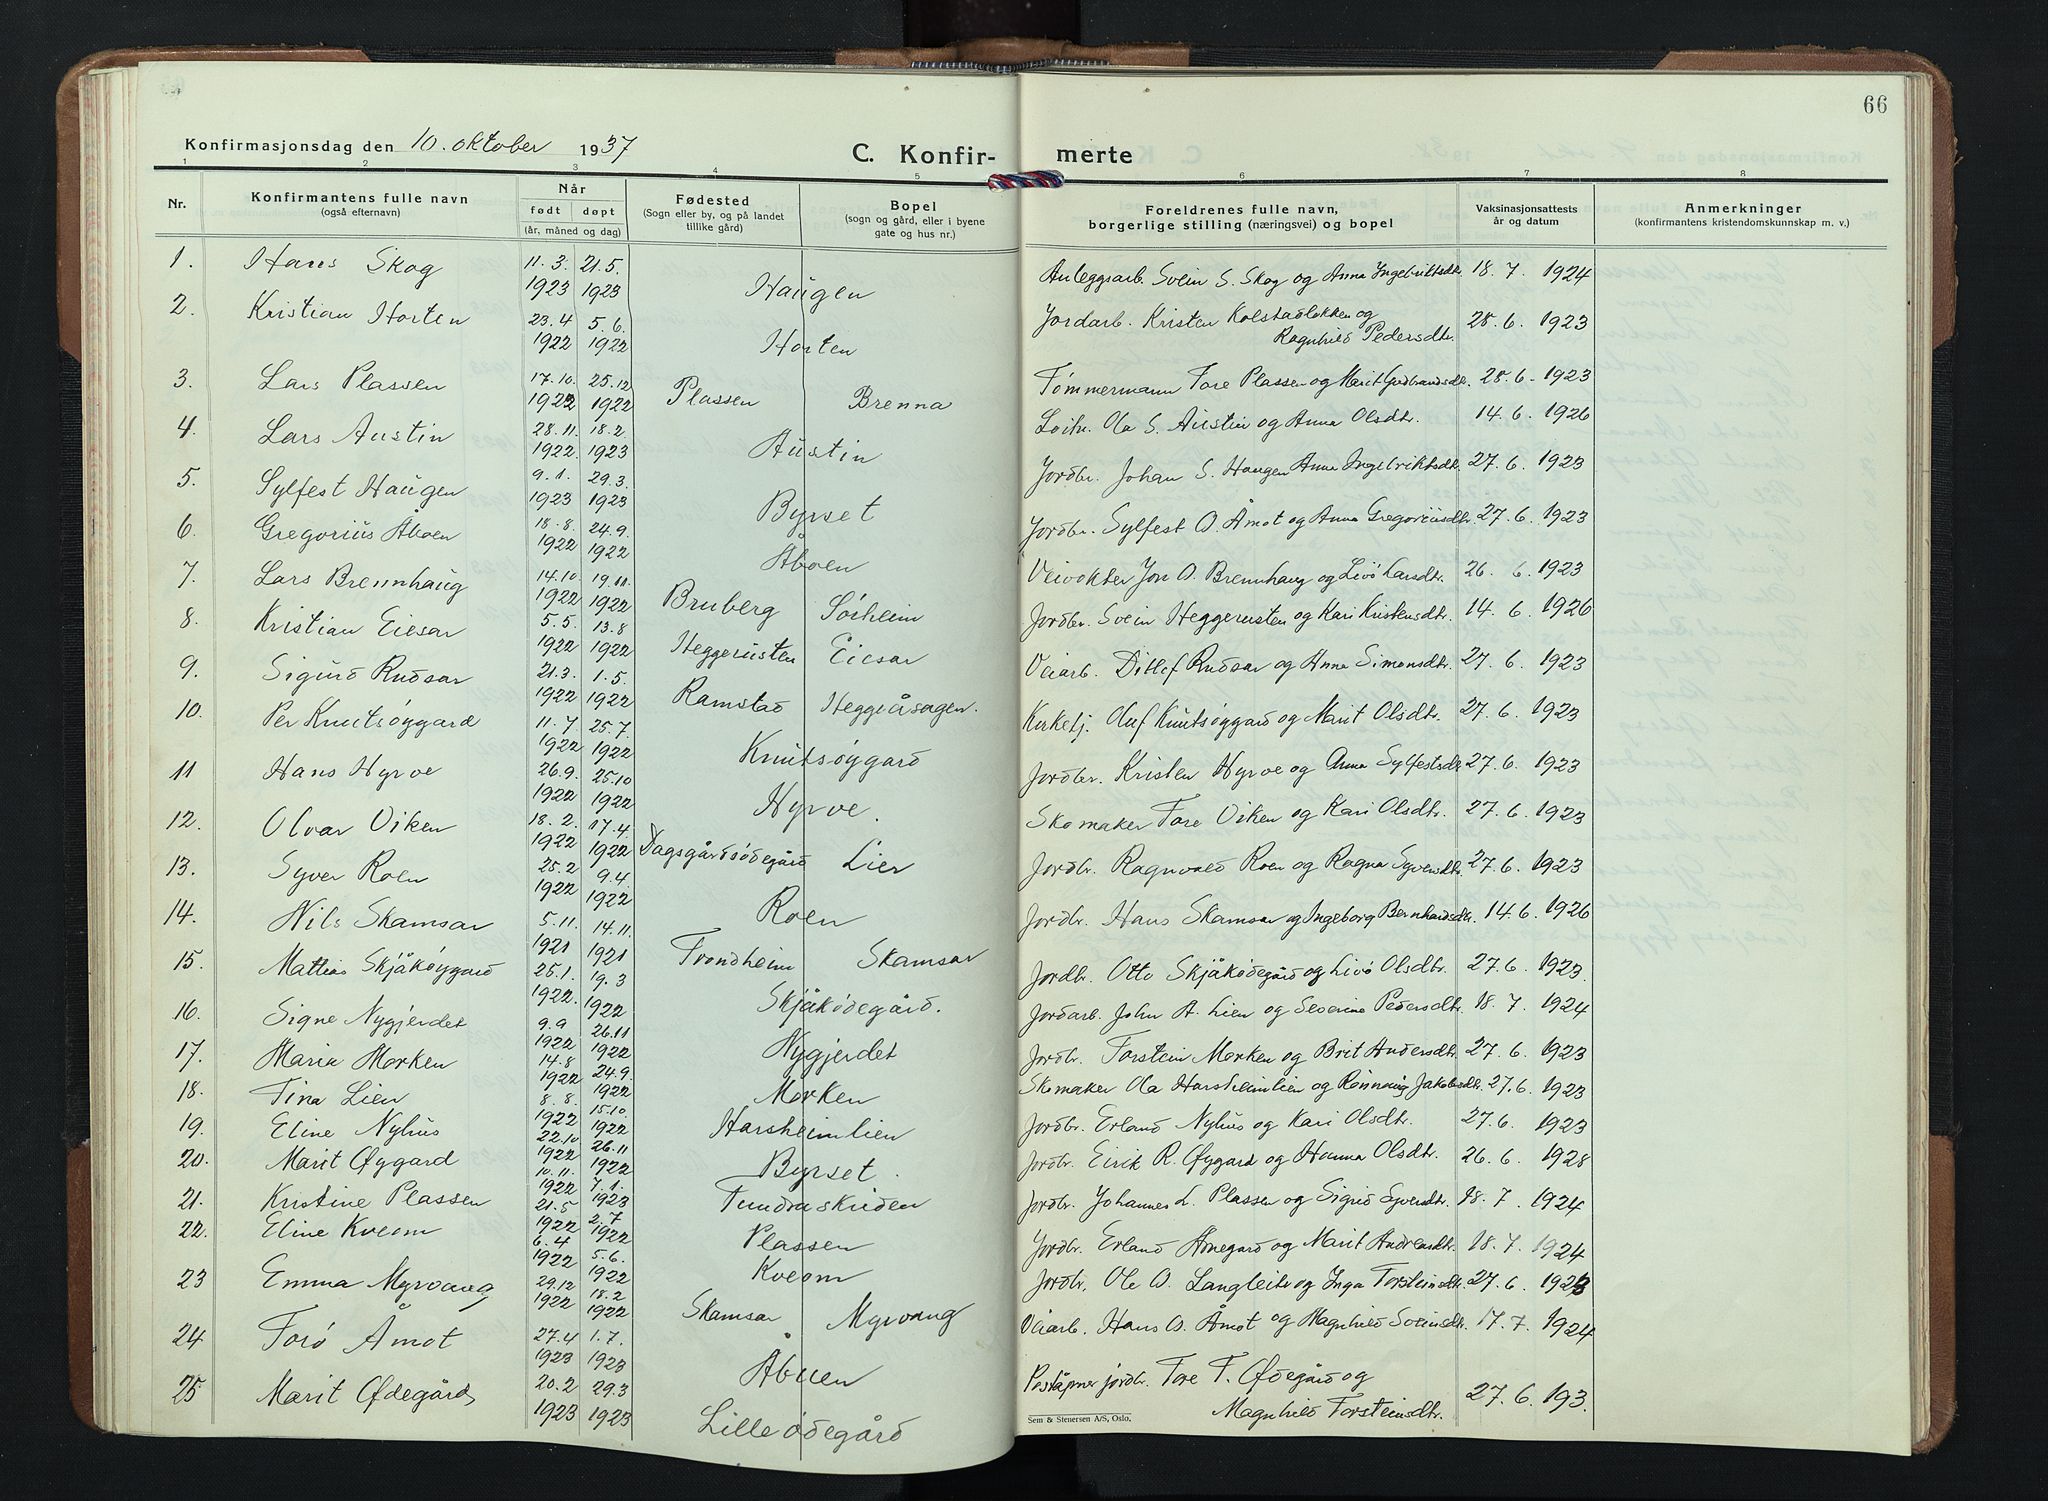 66
Konfirmasjonsdag den 10. oktober 1937
C. Konfir- merte
1 2 3 4 5 6 7 8
Nr.
Konfirmantens fulle navn
(også efternavn)
Når
født døpt
(år, måned og dag)
Fødested
(Sogn eller by, og på landet
tillike gård)
Bopel
(sogn og gård, eller i byene
gate og hus nr.)
Foreldrenes fulle navn,
borgerlige stilling (næringsvei) og bopel
Vaksinasjonsattests
år og datum
Anmerkninger
(konfirmantens kristendomskunnskap m. v.)
1. Hans Skog 11. 3. 1923 21. 5. 1923 Haugen Anleggsarb. Svein S. Skog og Anna Ingebriktsdtr. 18. 7. 1924
2. Kristian Horten 23. 4 1922 5. 6. 1922 Horten Jordarb. Kristen Kolstadløkken og
Ragnhild Pedersdtr. 28. 6. 1923
3. Lars Plassen 17. 10. 1922 25. 12 1922 Plassen Brenna Tømmermann Tore Plassen og Marit Gudbrandsdtr. 28. 6. 1923
4. Lars Austin 28. 11. 1922. 18. 2. 1923 Austin Ola S. Austin og Anna Olsdtr. 14. 6. 1926
5. Sylfest Haugen 9. 1. 1923 29. 3. 1923 Byrset Jordbr. Johan S. Haugen Anna Ingebriktsdtr. 27. 6. 1923
6. Gregorius Åboen 18. 8. 1922 24. 9. 1922 Åboen Jordbr. Sylfest O. Åmot og Anna Gregoriusdtr. 27. 6. 1923
7. Lars Brennhaug 14. 10. 1922 19. 11. 1922 Bruberg Sörheim Veivokter Jon O. Brennhaug og Livö Larsdtr. 26. 6. 1923
8. Kristian Eiesar 5. 5. 1922 13. 8 1922 Heggerusten Eiesar Jordbr. Svein Heggerusten og Kari Kristensdtr. 14. 6. 1926
9. Sigurd Rudsar 21. 3. 1922 1. 5. 1922 Ramstad Heggeåsagen. Veiarb. Ditlef Rudsar og Anna Simonsdtr. 27. 6. 1923
10. Per Knutsøygard 11. 7 1922 25. 7. 1922 Knutsøygard Kirketj. Oluf Knutsøygard og Marit Olsdtr. 27. 6. 1923
11 Hans Hyrve 26. 9. 1922 25. 10 1922 Hyrve. Jordbr. Kristen Hyrve og Anna Sylfestsdtr. 27. 6. 1923
12. Olvar Viken 18. 2. 1922 17. 4. 1922 Dagsgårdsødegård Lier Skomaker Tore Viken og Kari Olsdtr. 27. 6. 1923
13. Syver Roen 25. 2 1922 9. 4. 1922 Roen Jordbr. Ragnvald Roen og Ragna Syversdtr. 27. 6. 1923
14. Nils Skamsar 5. 11. 1921 14. 11. 1921 Trondheim Skamsar Jordbr. Hans Skamsar og Ingeborg Bernhardsdtr. 14. 6. 1926
15. Mattias Skjåkøygard 25. 1. 1922. 19. 3 1922 Skjåkødegård. Jordbr. Otto Skjåkødegård og Livö Olsdtr. 27. 6. 1923.
16. Signe Nygjerdet 9. 9 1922 26. 11 1922 Nygjerdet Jordarb. John A. Lien og Severine Pedersdtr. 18. 7. 1924
17. Maria Morken 14. 8 1922 24. 9. 1922 Morken Jordbr. Torstein Morken og Brit Andersdtr. 27. 6. 1923
18. Tina Lien 8. 8. 1922 15. 10. 1922 Harsheimlien Skomaker Ola Harsheimlien og Rønnaug Jakobsdtr. 27. 6. 1923
19. Eline Nyhus 22. 10 1922 26. 11 1922 Byrset. Jordbr. Erland Nyhus og Kari Olsdtr. 27. 6. 1923
20. Marit Øygard 10. 11. 1922 7. 1. 1923 Tundraskriden Jordbr. Eirik R. Øygard og Hanna Olsdtr. 26. 6. 1928
21. Kristine Plassen 21. 5 1922 2. 7 1922 Plassen Jordbr. Johannes L. Plassen og Sigrid Syversdtr. 18. 7. 1924
22. Eline Kveom 6. 4 1922 5. 6. 1922 Kveom Jordbr. Erland Årnegard og Marit Andreasdtr. 18. 7. 1924
23 Emma Myrvang 29. 12 1922 18. 2 1922 Skamsar Myrvang Jordbr. Ole O. Langleite og Inga Torsteinsdtr. 27. 6. 1923
24 Torø Åmot 27. 4 1923 1. 7. 1923 Åbuen Veiarb. Hans O. Åmot og Magnhild Sveinsdtr. 17. 7. 1924
25 Marit Ødegård 20. 2 1923 29. 3 1923 Lilleødegård Poståpner jordbr. Tore T. Ødegård og
Magnhild Torsteinsdtr. 27. 6. 193.
Sem & Stenersen A/S, Oslo.